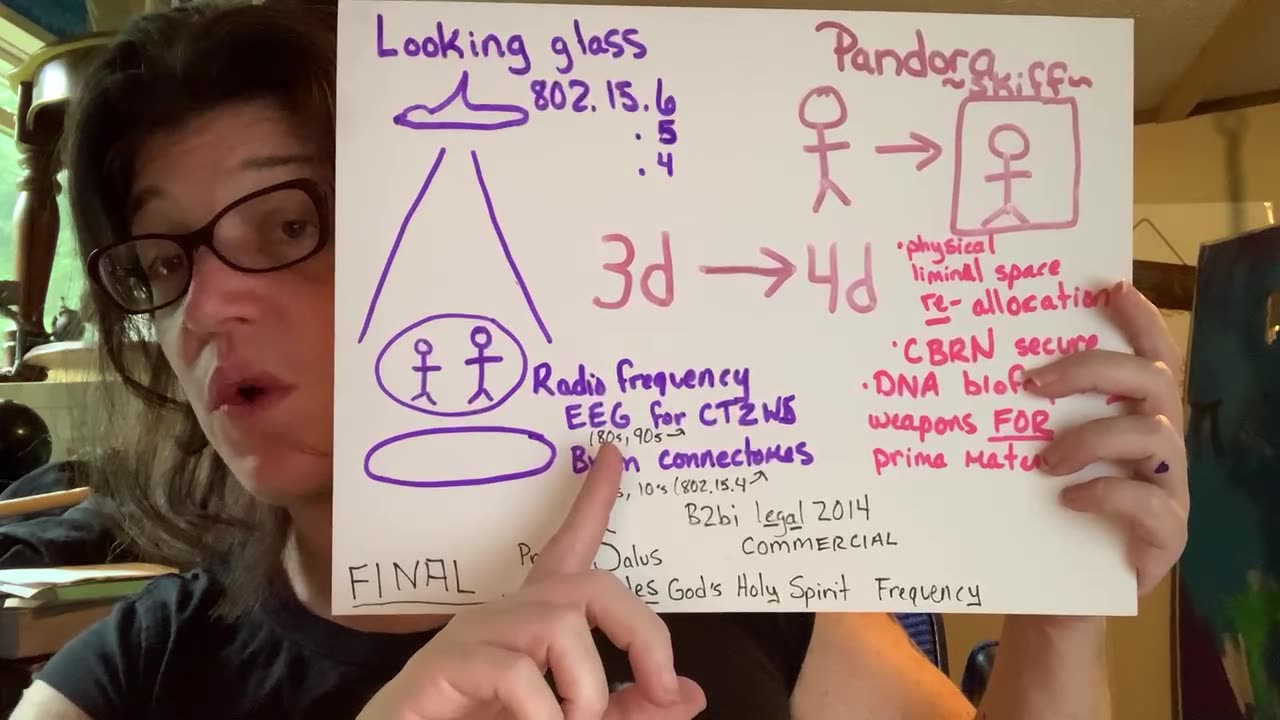 Looking glass
802.15.6
. 5
. 4
Pandora
~skiff~
3d → 4d
• physical
liminal space
re-allocation
• CBRN secure
• DNA
weapons FOR
prima
Radio frequency
EEG for
(80s, 90s →
connectomes
10's (802.15.4
B2bi legal 2014
COMMERCIAL
FINAL
God's Holy Spirit Frequency